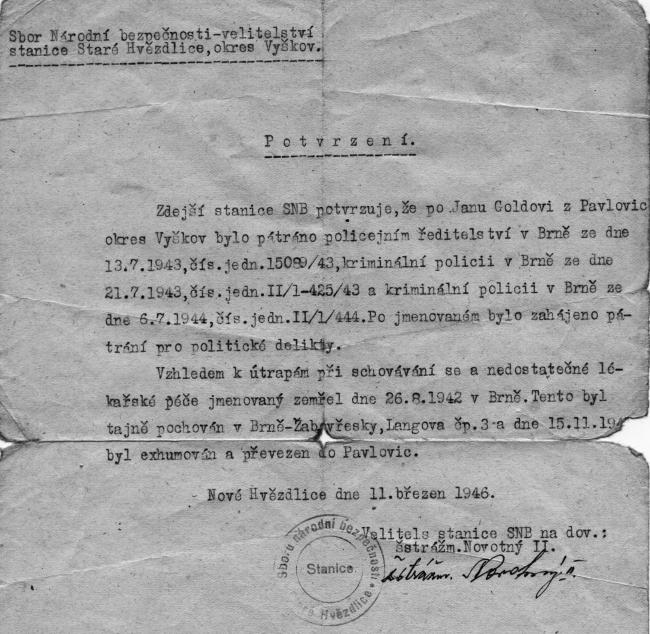 Sbor Národní bezpečnosti-velitelství
stanice Staré Hvězdlice,okres Vyškov.
Potvrzení.
Zdejší stanice SNB potvrzuje,že po Janu Goldovi z Pavlovic
okres Vyškov bylo pátráno policejním ředitelství v Brně ze dne
13.7.1943,čís.jedn.15089/43,kriminální policii v Brně ze dne
21.7.1943,čís.jedn.II/1-425/43 a kriminální policii v Brně ze
dne 6.7.1944,čís.jedn.II/1/444.Po jmenovaném bylo zahájeno pá-
trání pro politické delikty.
Vzhledem k útrapám při schovávání se a nedostatečné lé-
kařské péče jmenovaný zemřel dne 26.8.1942 v Brně.Tento byl
tajně pochován v Brně-Žabovřesky,Langova čp.3 a dne 15.11.
byl exhumován a převezen do Pavlovic.
Nové Hvězdlice dne 11.březen 1946.
Velitels stanice SNB na dov.:
šstrážm.Novotný II.
šstrážm. Novotný II.
Sboru národní bezpečnosti
Stanice
Staré Hvězdlice